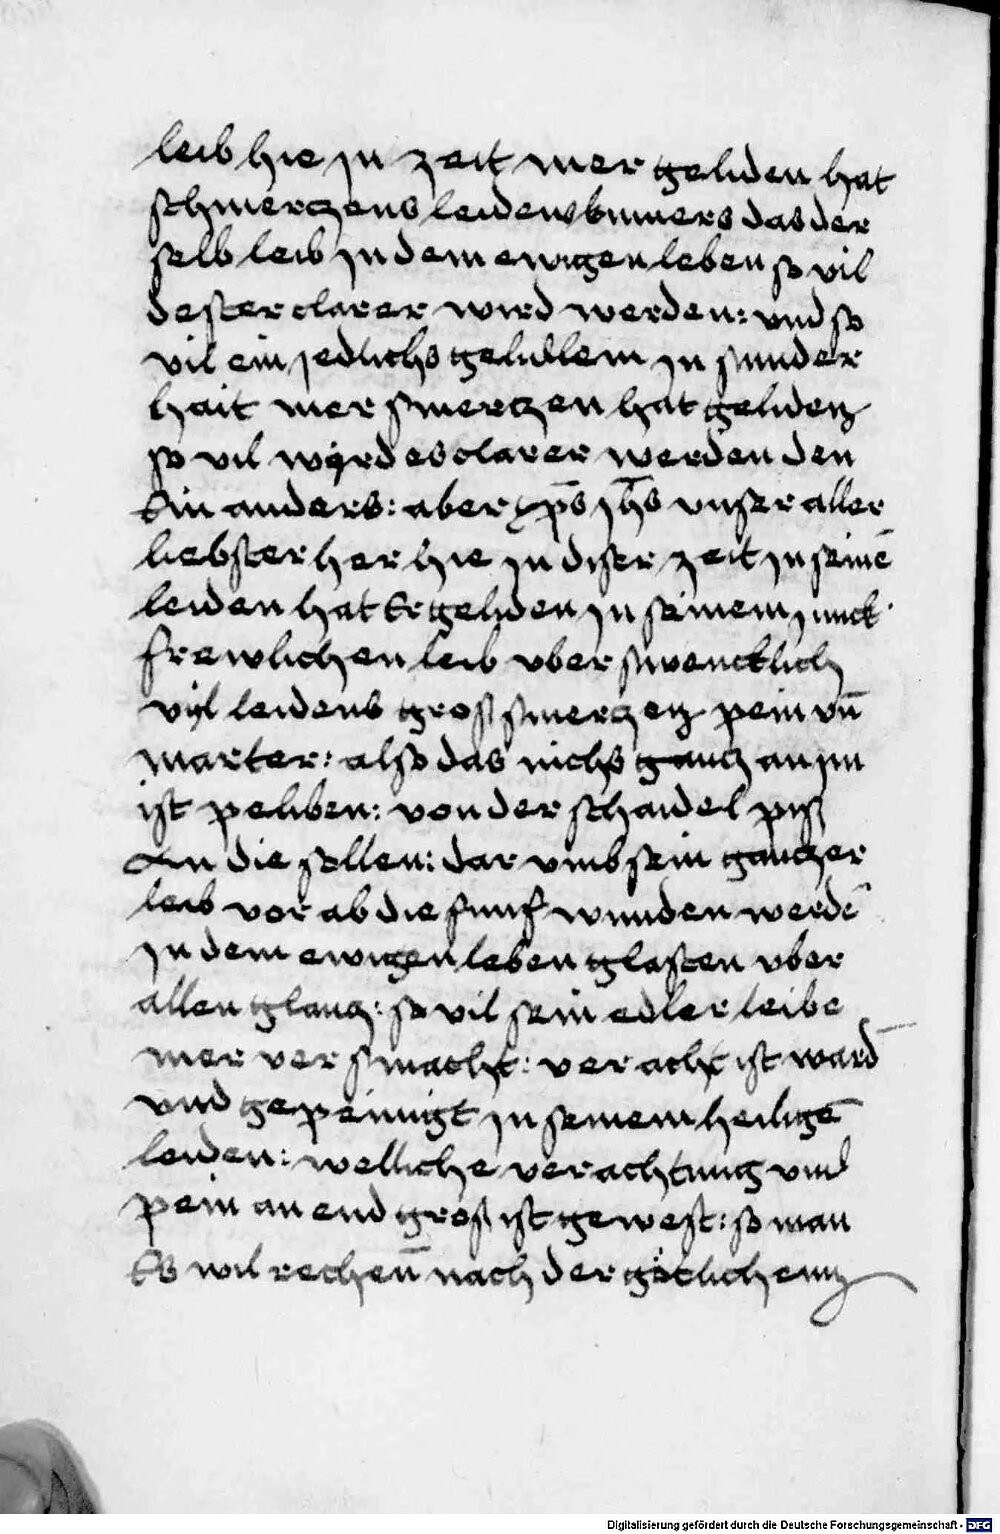 leib hie jn zeit mer geliden hat
schmerczens leidens kumers das der
selb leib jn dem ewigen leben so vil
dester clarer wird werden: vnd so
vil ein jedlichs gelidlein jn sunder
hait mer smerczen hat geliden
so vil wyrd es clarer werden den
Ein anders: aber xp̄s jh̄s vnser aller
liebster her hie jn diser zeit jn seinē
leiden hat Er geliden jn seinem junck
frewlichen leib vber swencklich
vil leidens groß smerczen pein vn̄
marter: also das nichs gancz an jm
ist peliben: von der schaidel piß
An die sollen: dar vmb sein ganczer
leib vor ab die funf wunden werdē
jn dem ewigen leben glasten vber
allen glancz: so vil sein edler leibe
mer versmacht: veracht ist ward̄
vnd gepeinigt jn seinem heiligē
leiden: welliche verachtung vnd
pein an end groß ist gewest: so man
Es wil rechen̄ nach der götlichenn
Digitalisierung gefördert durch die Deutsche Forschungsgemeinschaft - DFG